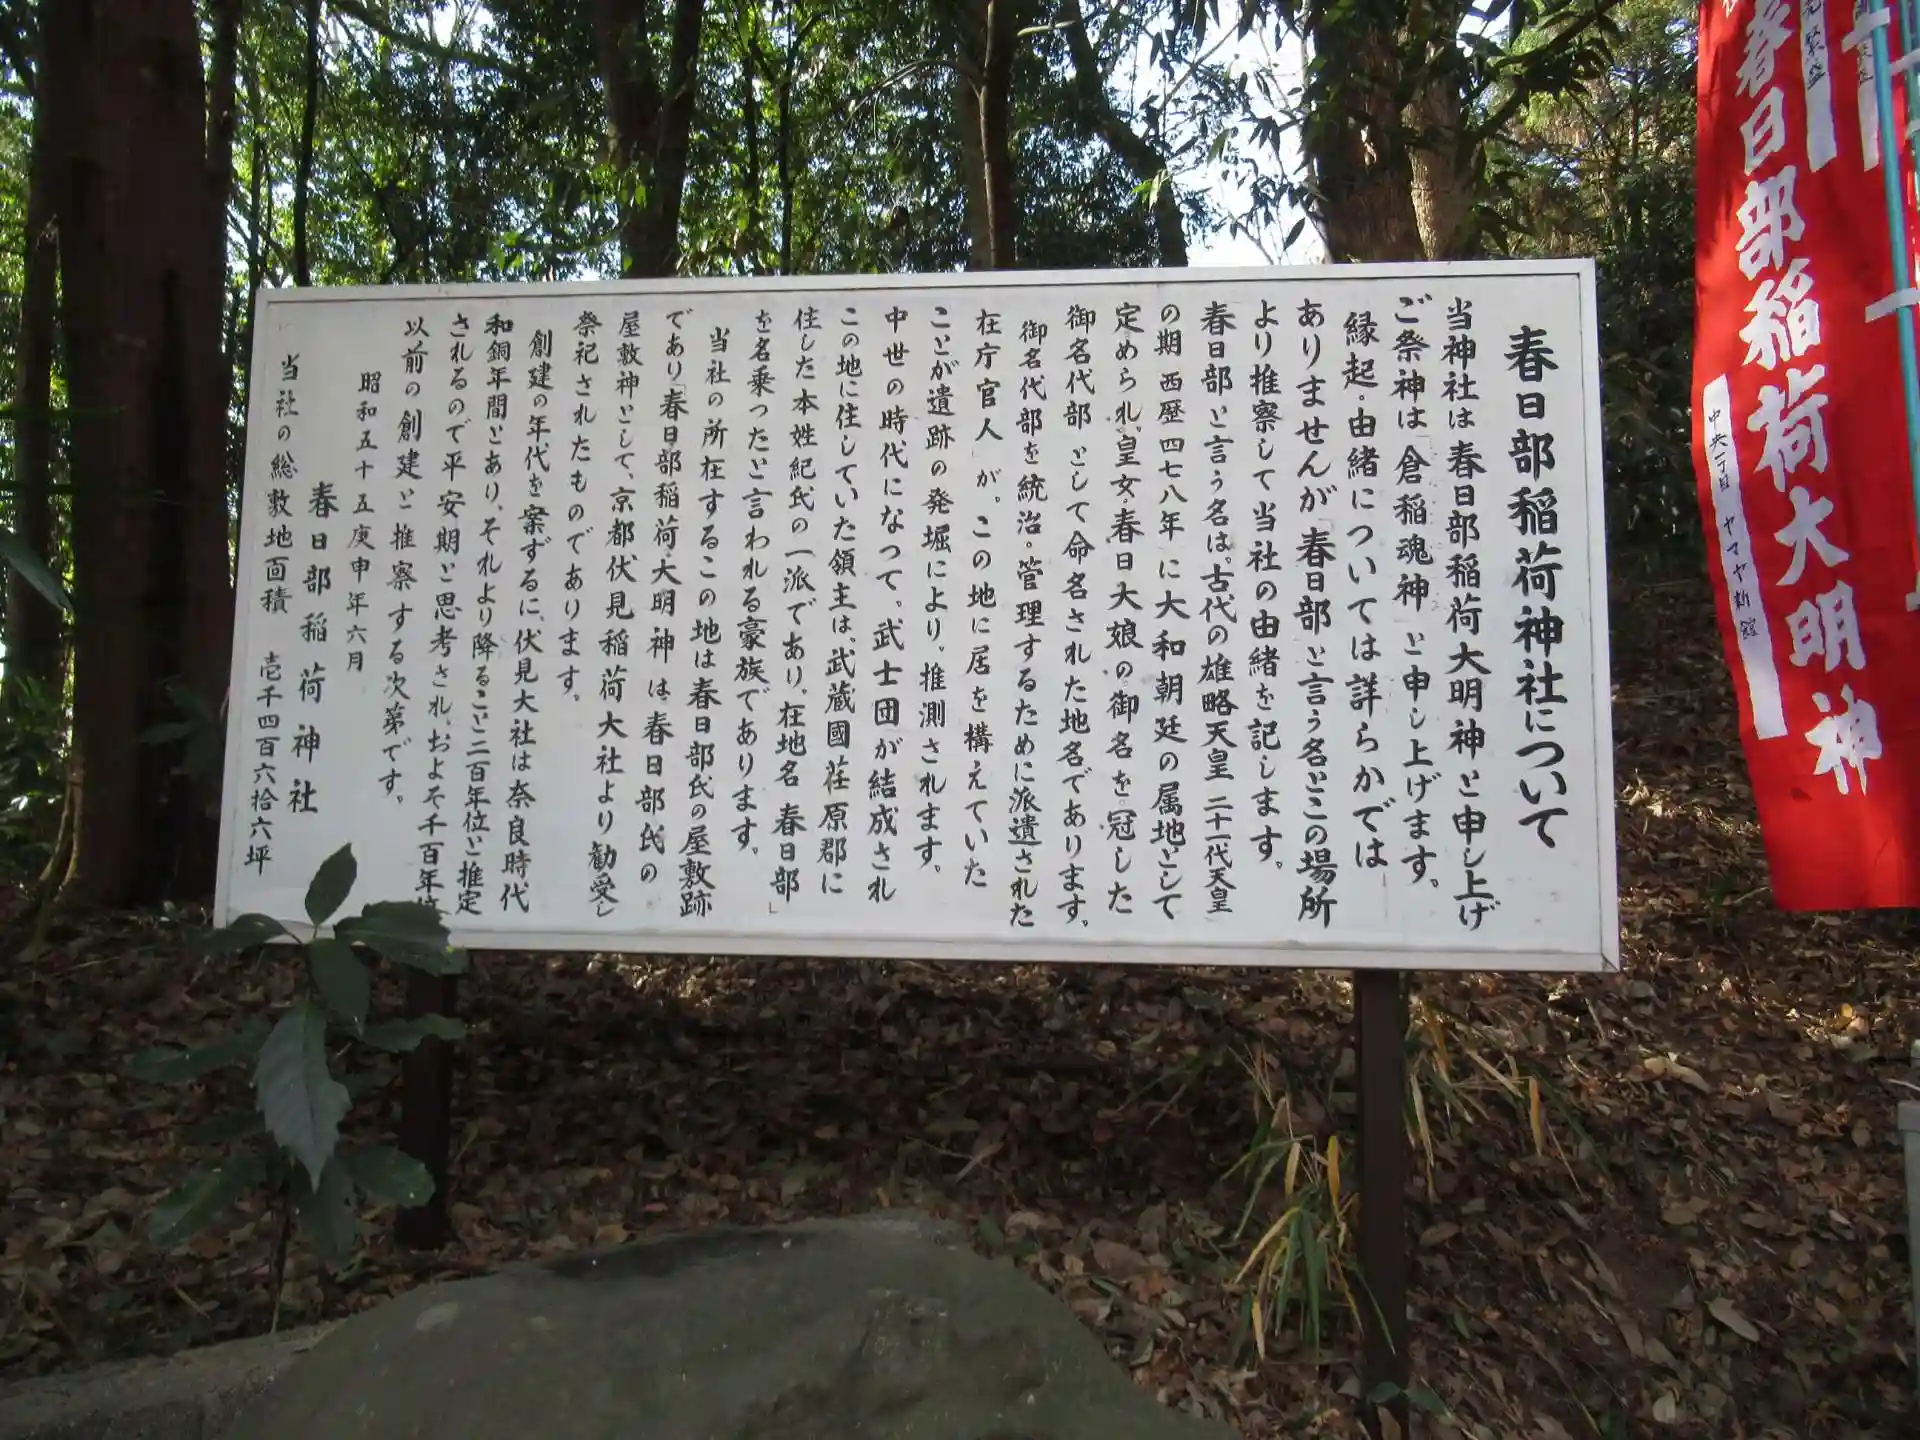 春日部稲荷神社について
当神社は春日部稲荷大明神と申し上げ
ご祭神は「倉稲魂神」と申し上げます。
縁起・由緒については詳らかでは
ありませんが「春日部」と言う名とこの場所
より推察して当社の由緒を記します。
春日部と言う名は、古代の雄略天皇「二十一代天皇」
の期「西歴四七八年」に大和朝廷の属地として
定められ、皇女・春日大娘の御名を冠した
御名代部「として命名された地名であります。
御名代部を統治・管理するために派遣された
在庁官人」が、この地に居を構えていた
ことが遺跡の発堀により、推測されます。
中世の時代になつて、武士団が結成され
この地に住していた領主は、武蔵國荏原郡に
住した本姓紀氏の一派であり、在地名「春日部」
を名乗ったと言われる豪族であります。
当社の所在するこの地は春日部氏の屋敷跡
であり「春日部稲荷大明神」は春日部氏の
屋敷神として、京都伏見稲荷大社より勧受し
祭祀されたものであります。
創建の年代を案ずるに、伏見大社は奈良時代
和銅年間とあり、それより降ること二百年位と推定
されるので平安期と思考され、およそ千百年位
以前の創建と推察する次第です。
昭和五十五庚申年六月
春日部稲荷神社
当社の総敷地面積 壱千四百六拾六坪
春日部稲荷大明神
中央一丁目 ヤマヤ新館